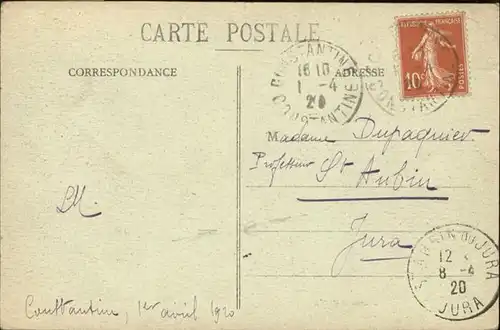 CARTE POSTALE
CORRESPONDANCE
ADRESSE
CONSTANTINE
16 10
1 -4
20
CONSTANTINE
RÉPUBLIQUE FRANÇAISE
10c
POSTES
CONSTANTINE
Madame Dupaquier
Professeur St Aubin
Jura
M.
ST AUBIN DU JURA
12
8 -4
20
JURA
Constantine, 1er avril 1920